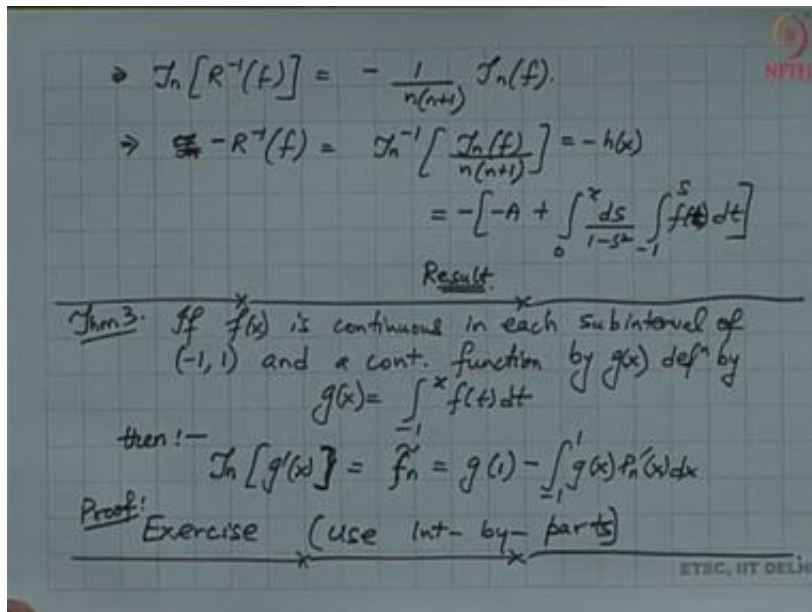 ⇒ Tn[R⁻¹(f)] = - 1/n(n+1) Tn(f).
⇒ -R⁻¹(f) = Tn⁻¹[Tn(f)/n(n+1)] = -h(x)
= -[-A + ∫₀ˣ ds/1-s² ∫₋₁ˢ f(t) dt]
Result.
Thm 3. If f(x) is continuous in each subinterval of
(-1, 1) and a cont. function by g(x) defⁿ by
g(x) = ∫₋₁ˣ f(t) dt
then :-
Tn[g'(x)] = f̃n = g(1) - ∫₋₁¹ g(x) Pn'(x) dx
Proof:
Exercise (Use Int- by- parts)
NPTEL
ETSC, IIT DELHI